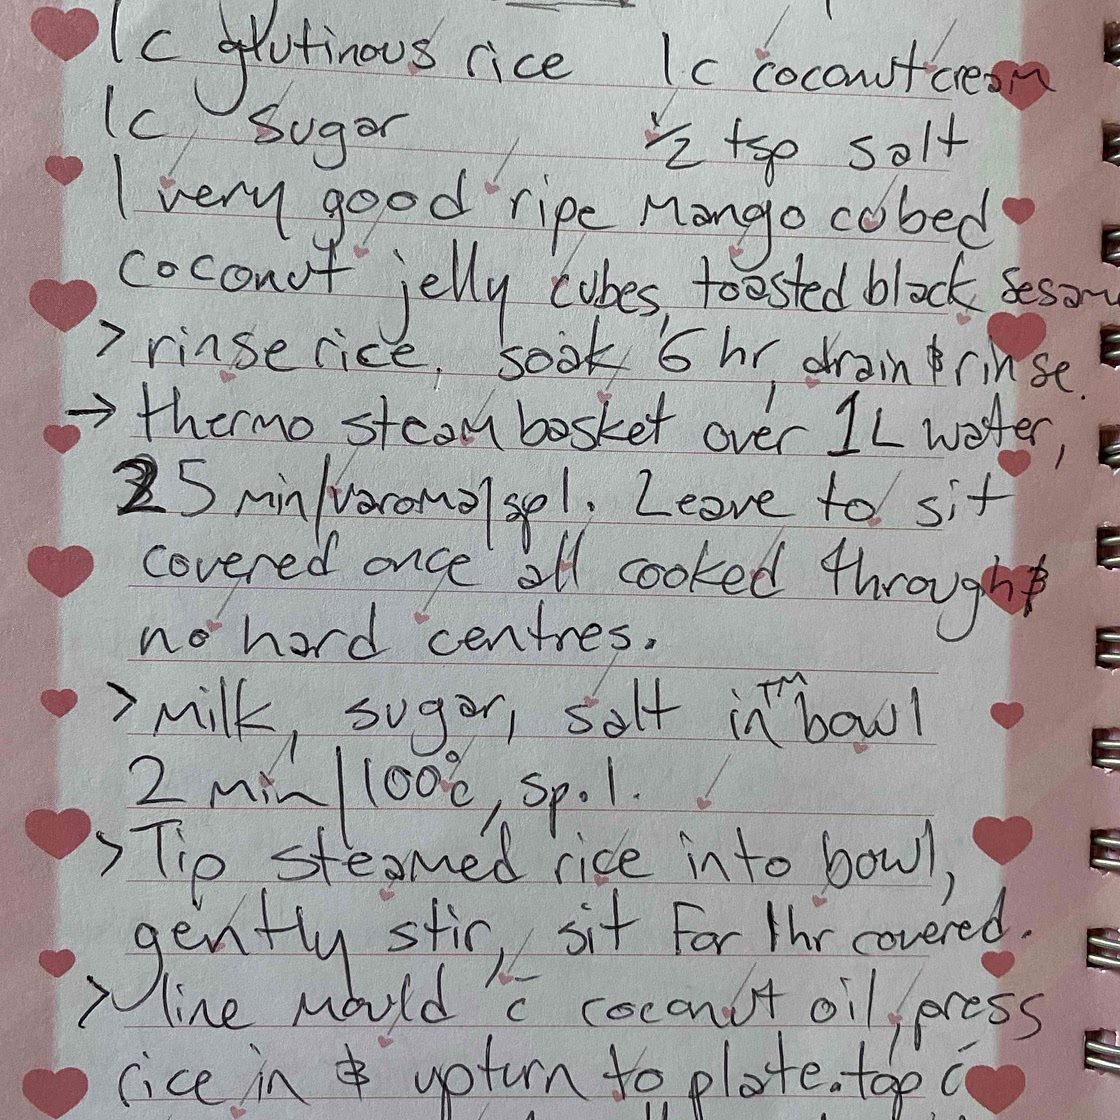 1c glutinous rice 1c coconut cream
1c sugar ½ tsp salt
1 very good ripe mango cubed
coconut jelly cubes, toasted black sesam
> rinse rice, soak 6 hr, drain & rinse.
→ thermo steam basket over 1L water,
25 min/varoma/sp 1. Leave to sit
covered once all cooked through &
no hard centres.
> Milk, sugar, salt in TM bowl
2 min/100°c, sp.1.
> Tip steamed rice into bowl,
gently stir, sit for 1hr covered.
> line mould c̄ coconut oil, press
rice in & upturn to plate. top c̄